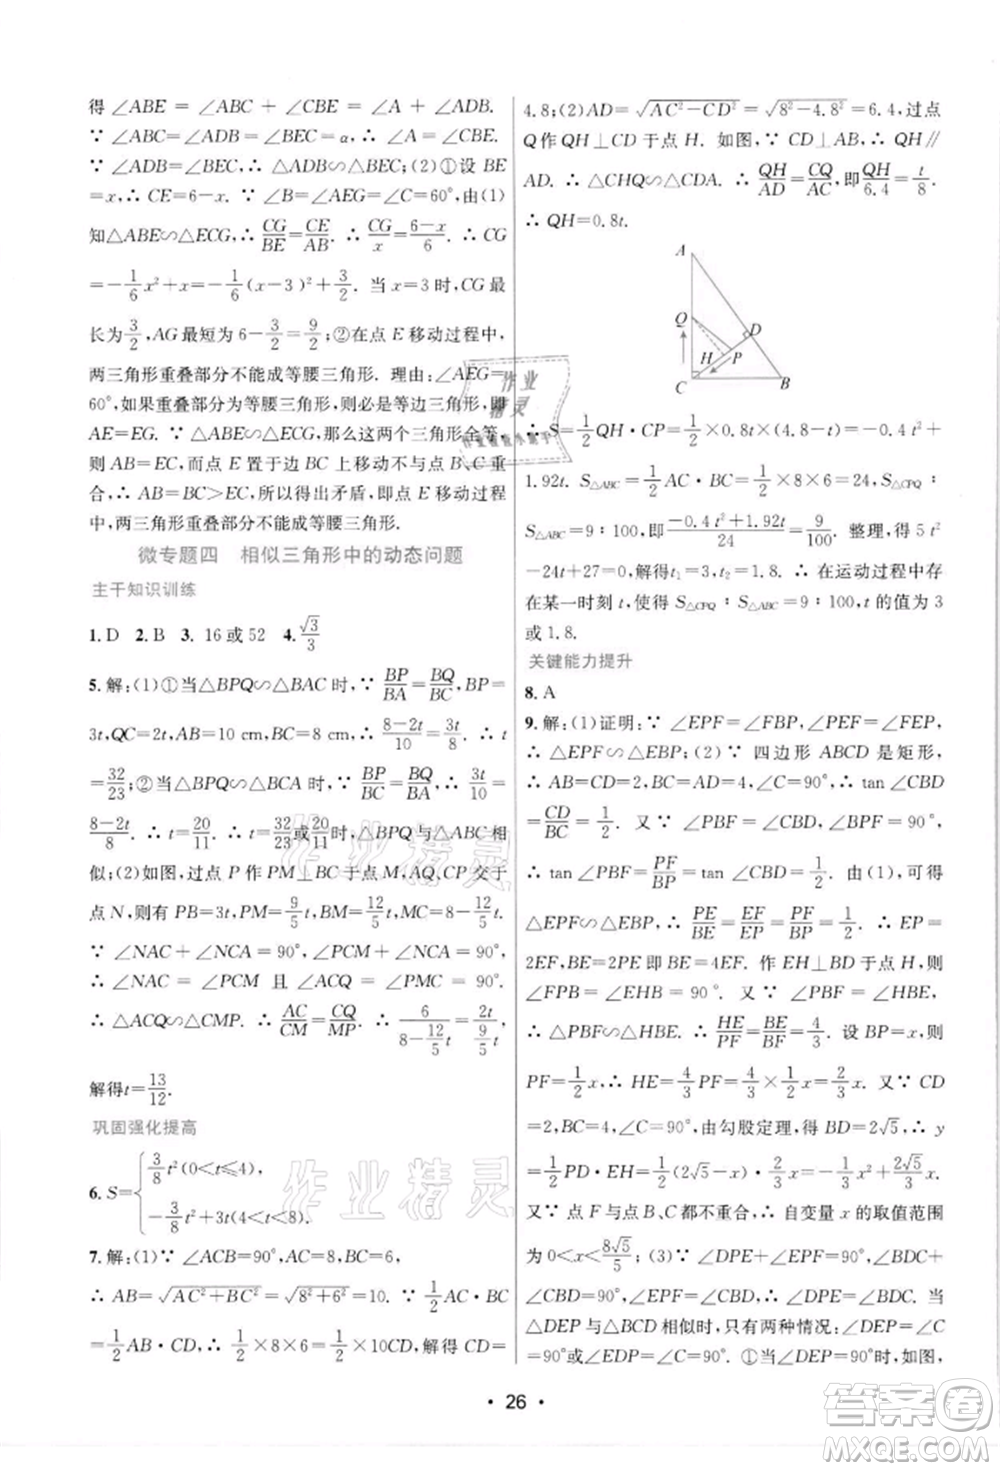 得 ∠ABE = ∠ABC + ∠CBE = ∠A + ∠ADB.
∵ ∠ABC=∠ADB=∠BEC=α,∴ ∠A=∠CBE.
∵ ∠ADB=∠BEC,∴ △ADB∽△BEC;(2)①设 BE
=x,∴ CE=6-x. ∵ ∠B=∠AEG=∠C=60°,由(1)
知△ABE∽△ECG,∴ CG/BE=CE/AB. ∴ CG/x=(6-x)/6. ∴ CG
=-1/6x²+x=-1/6(x-3)²+3/2. 当 x=3时,CG最
长为3/2,AG最短为6-3/2=9/2;②在点 E 移动过程中,
两三角形重叠部分不能成等腰三角形. 理由:∠AEG=
60°,如果重叠部分为等腰三角形,则必是等边三角形,即
AE=EG. ∵ △ABE∽△ECG,那么这两个三角形全等,
则 AB=EC,而点 E 在边 BC 上移动不与点 B、C 重
合,∴ AB=BC>EC,所以得出矛盾,即点 E 移动过程
中,两三角形重叠部分不能成等腰三角形.
微专题四 相似三角形中的动态问题
主干知识训练
1. D 2. B 3. 16或52 4. √3/3
5. 解:(1)①当△BPQ∽△BAC 时,∵ BP/BA=BQ/BC,BP=
3t,QC=2t,AB=10 cm,BC=8 cm,∴ (8-2t)/10=3t/8,∴ t
=32/23;②当△BPQ∽△BCA 时,∵ BP/BC=BQ/BA,∴ 3t/10=
(8-2t)/8. ∴ t=20/11. ∴ t=32/23或20/11时,△BPQ与△ABC相
似;(2)如图,过点 P 作 PM⊥BC 于点 M,AQ,CP 交于
点 N,则有 PB=3t,PM=9/5t,BM=12/5t,MC=8-12/5t.
∵ ∠NAC+∠NCA=90°,∠PCM+∠NCA=90°,∴
∠NAC = ∠PCM 且 ∠ACQ = ∠PMC = 90°,
∴ △ACQ∽△CMP. ∴ AC/CM=CQ/MP. ∴ 6/(8-12/5t)=2t/(9/5t),
解得t=13/12.
巩固强化提高
6. S={3/8t²(0<t≤4),
-3/8t²+3t(4<t<8).
7. 解:(1)∵ ∠ACB=90°,AC=8,BC=6,
∴ AB=√(AC²+BC²)=√(8²+6²)=10. ∵ 1/2AC·BC
=1/2AB·CD,∴ 1/2×6×8=1/2×10CD,解得 CD=
4.8;(2)AD=√(AC²-CD²)=√(8²-4.8²)=6.4,过点
Q作 QH⊥CD 于点 H. 如图,∵ CD⊥AB,∴ QH∥
AD. ∴ △CHQ∽△CDA. ∴ QH/AD=CQ/AC,即QH/6.4=t/8.
∴ QH=0.8t.
A
Q
D
H P
C B
∴ S=1/2QH·CP=1/2×0.8t×(4.8-t)=-0.4t²+
1.92t. S△ABC=1/2AC·BC=1/2×8×6=24. ∵ S△CPQ:
S△ABC=9:100,∴ (-0.4t²+1.92t)/24=9/100. 整理,得5t²
-24t+27=0,解得t₁=3,t₂=1.8. ∴ 在运动过程中存
在某一时刻 t,使得 S△CPQ:S△ABC=9:100,t 的值为 3
或 1.8.
关键能力提升
8. A
9. 解:(1)证明:∵ ∠EPF=∠FBP,∠PEF=∠FEP,
∴ △EPF∽△EBP;(2)∵ 四边形 ABCD 是矩形,
∴ AB=CD=2,BC=AD=4,∠C=90°,∴ tan∠CBD
=CD/BC=1/2. 又∵ ∠PBF=∠CBD,∠BPF=90°,
∴ tan∠PBF=PF/BP=tan∠CBD=1/2. 由(1),可得
△EPF∽△EBP,∴ PE/BE=EF/EP=PF/BP=1/2. ∴ EP=
2EF,BE=2PE 即 BE=4EF. 作 EH⊥BD 于点 H,
∴ ∠FPB=∠EHB=90°. 又∵ ∠PBF=∠CBD,
∴ △PBF∽△HBE. ∴ HE/PF=BE/BF=4/3. 设 BP=x,则
PF=1/2x,∴ HE=4/3PF=4/3×1/2x=2/3x. 又∵ CD=
2,BC=4,∠C=90°,由勾股定理,得 BD=2√5,∴ y
=1/2PD·EH=1/2(2√5-x)·2/3x=-1/3x²+2√5/3x.
∵ 点 F 与点 B、C 都不重合,∴ 自变量 x 的取值范围
为 0<x<8√5/5;(3)∵ ∠DPE+∠EPF=90°,∠PBF
+∠CBD=90°,∠EPF=∠CBD,∴ ∠DPE=∠BDC. 当
△DEP与△BCD相似时,只有两种情况:∠DEP=∠C
=90°或∠EDP=∠C=90°. ①当∠DEP=90°时,如图,
·26·
作业精灵
作业精灵
作业精灵
答案圈
MXQE.COM